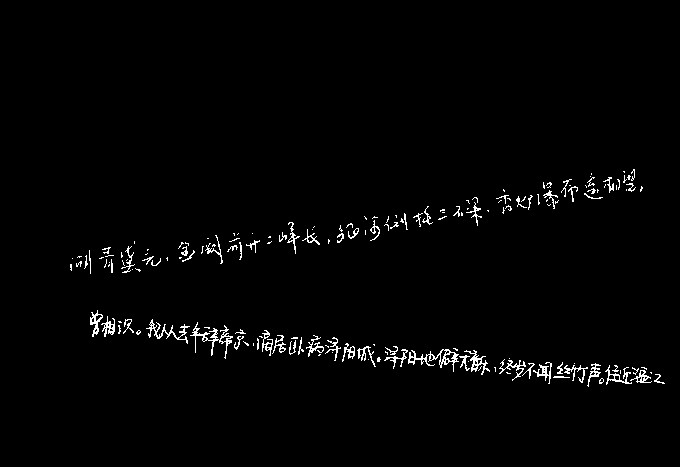 湖青黛光,金阙前开二峰长,银河倒挂三石梁,香炉瀑布遥相望,
曾相识。我从去年辞帝京,谪居卧病浔阳城。浔阳地僻无音乐,终岁不闻丝竹声。住近湓江